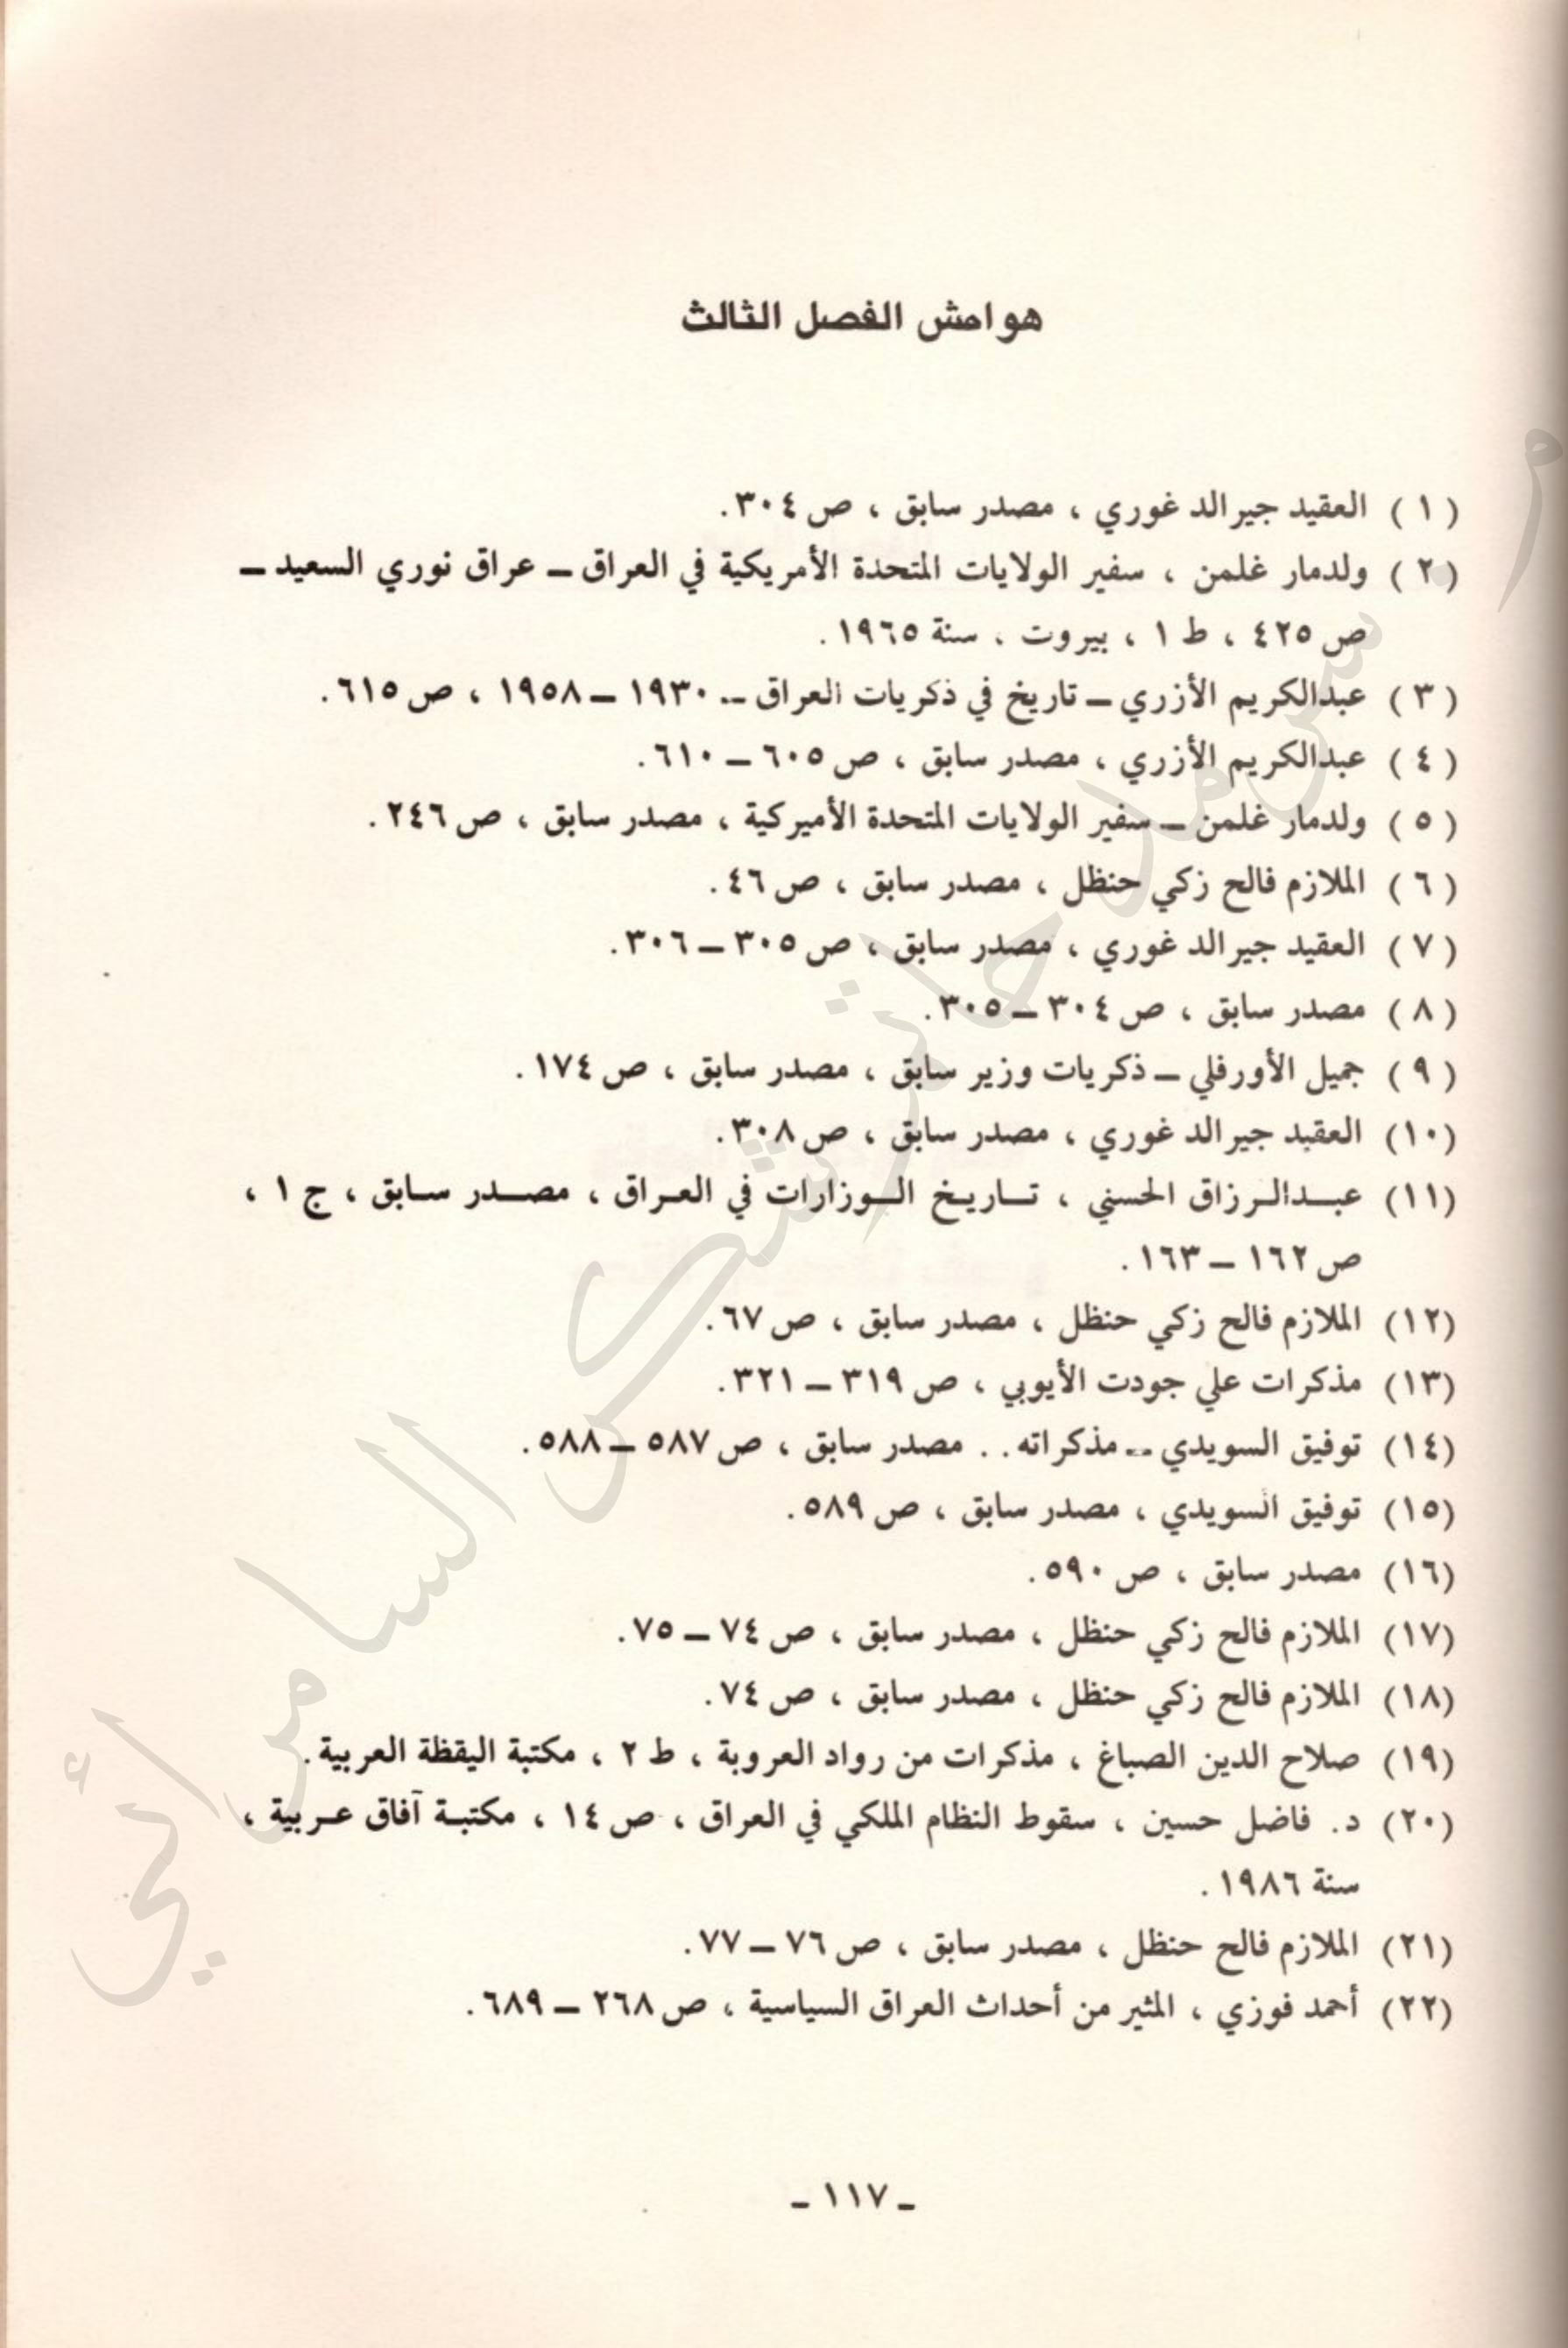 هوامش الفصل الثالث
(١) العقيد جيرالد غوري ، مصدر سابق ، ص ٣٠٤.
(٢) ولدمار غلمن ، سفير الولايات المتحدة الأمريكية في العراق ــ عراق نوري السعيد ــ
ص ٤٢٥ ، ط ١ ، بيروت ، سنة ١٩٦٥.
(٣) عبدالكريم الأزري ــ تاريخ في ذكريات العراق ــ ١٩٣٠ ــ ١٩٥٨ ، ص ٦١٥.
(٤) عبدالكريم الأزري ، مصدر سابق ، ص ٦٠٥ ــ ٦١٠.
(٥) ولدمار غلمن ــ سفير الولايات المتحدة الأميركية ، مصدر سابق ، ص ٢٤٦.
(٦) الملازم فالح زكي حنظل ، مصدر سابق ، ص ٤٦.
(٧) العقيد جيرالد غوري ، مصدر سابق ، ص ٣٠٥ ــ ٣٠٦.
(٨) مصدر سابق ، ص ٣٠٤ ــ ٣٠٥.
(٩) جميل الأورفلي ــ ذكريات وزير سابق ، مصدر سابق ، ص ١٧٤.
(١٠) العقيد جيرالد غوري ، مصدر سابق ، ص ٣٠٨.
(١١) عبدالرزاق الحسني ، تاريخ الوزارات في العراق ، مصدر سابق ، ج ١ ،
ص ١٦٢ ــ ١٦٣.
(١٢) الملازم فالح زكي حنظل ، مصدر سابق ، ص ٦٧.
(١٣) مذكرات علي جودت الأيوبي ، ص ٣١٩ ــ ٣٢١.
(١٤) توفيق السويدي ــ مذكراته . . مصدر سابق ، ص ٥٨٧ ــ ٥٨٨.
(١٥) توفيق السويدي ، مصدر سابق ، ص ٥٨٩.
(١٦) مصدر سابق ، ص ٥٩٠.
(١٧) الملازم فالح زكي حنظل ، مصدر سابق ، ص ٧٤ ــ ٧٥.
(١٨) الملازم فالح زكي حنظل ، مصدر سابق ، ص ٧٤.
(١٩) صلاح الدين الصباغ ، مذكرات من رواد العروبة ، ط ٢ ، مكتبة اليقظة العربية.
(٢٠) د. فاضل حسين ، سقوط النظام الملكي في العراق ، ص ١٤ ، مكتبة آفاق عربية ،
سنة ١٩٨٦.
(٢١) الملازم فالح حنظل ، مصدر سابق ، ص ٧٦ ــ ٧٧.
(٢٢) أحمد فوزي ، المثير من أحداث العراق السياسية ، ص ٢٦٨ ــ ٦٨٩.
ــ ١١٧ ــ
سرمد حاتم شكر السامرائي